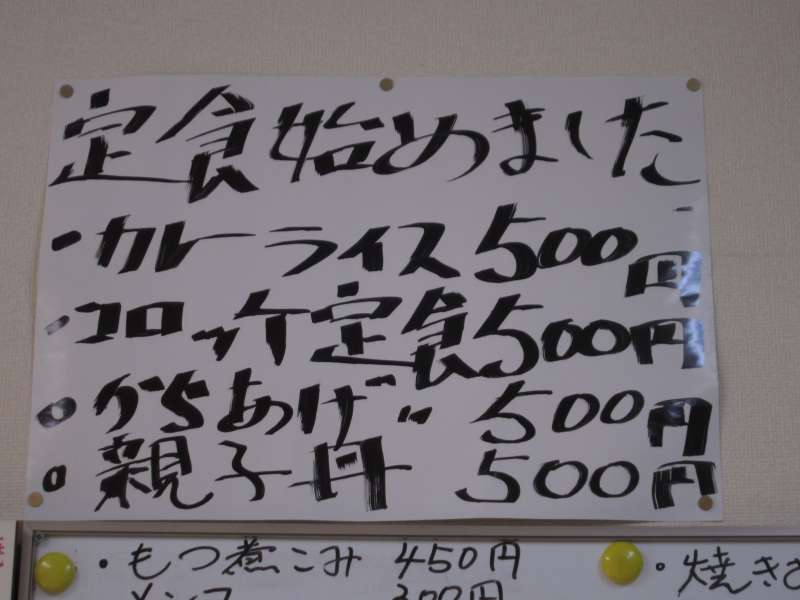 定食始めました
・カレーライス 500円
・コロッケ定食500円
・からあげ〃 500円
・親子丼 500円
・もつ煮こみ 450円
・焼き
メンマ 300円